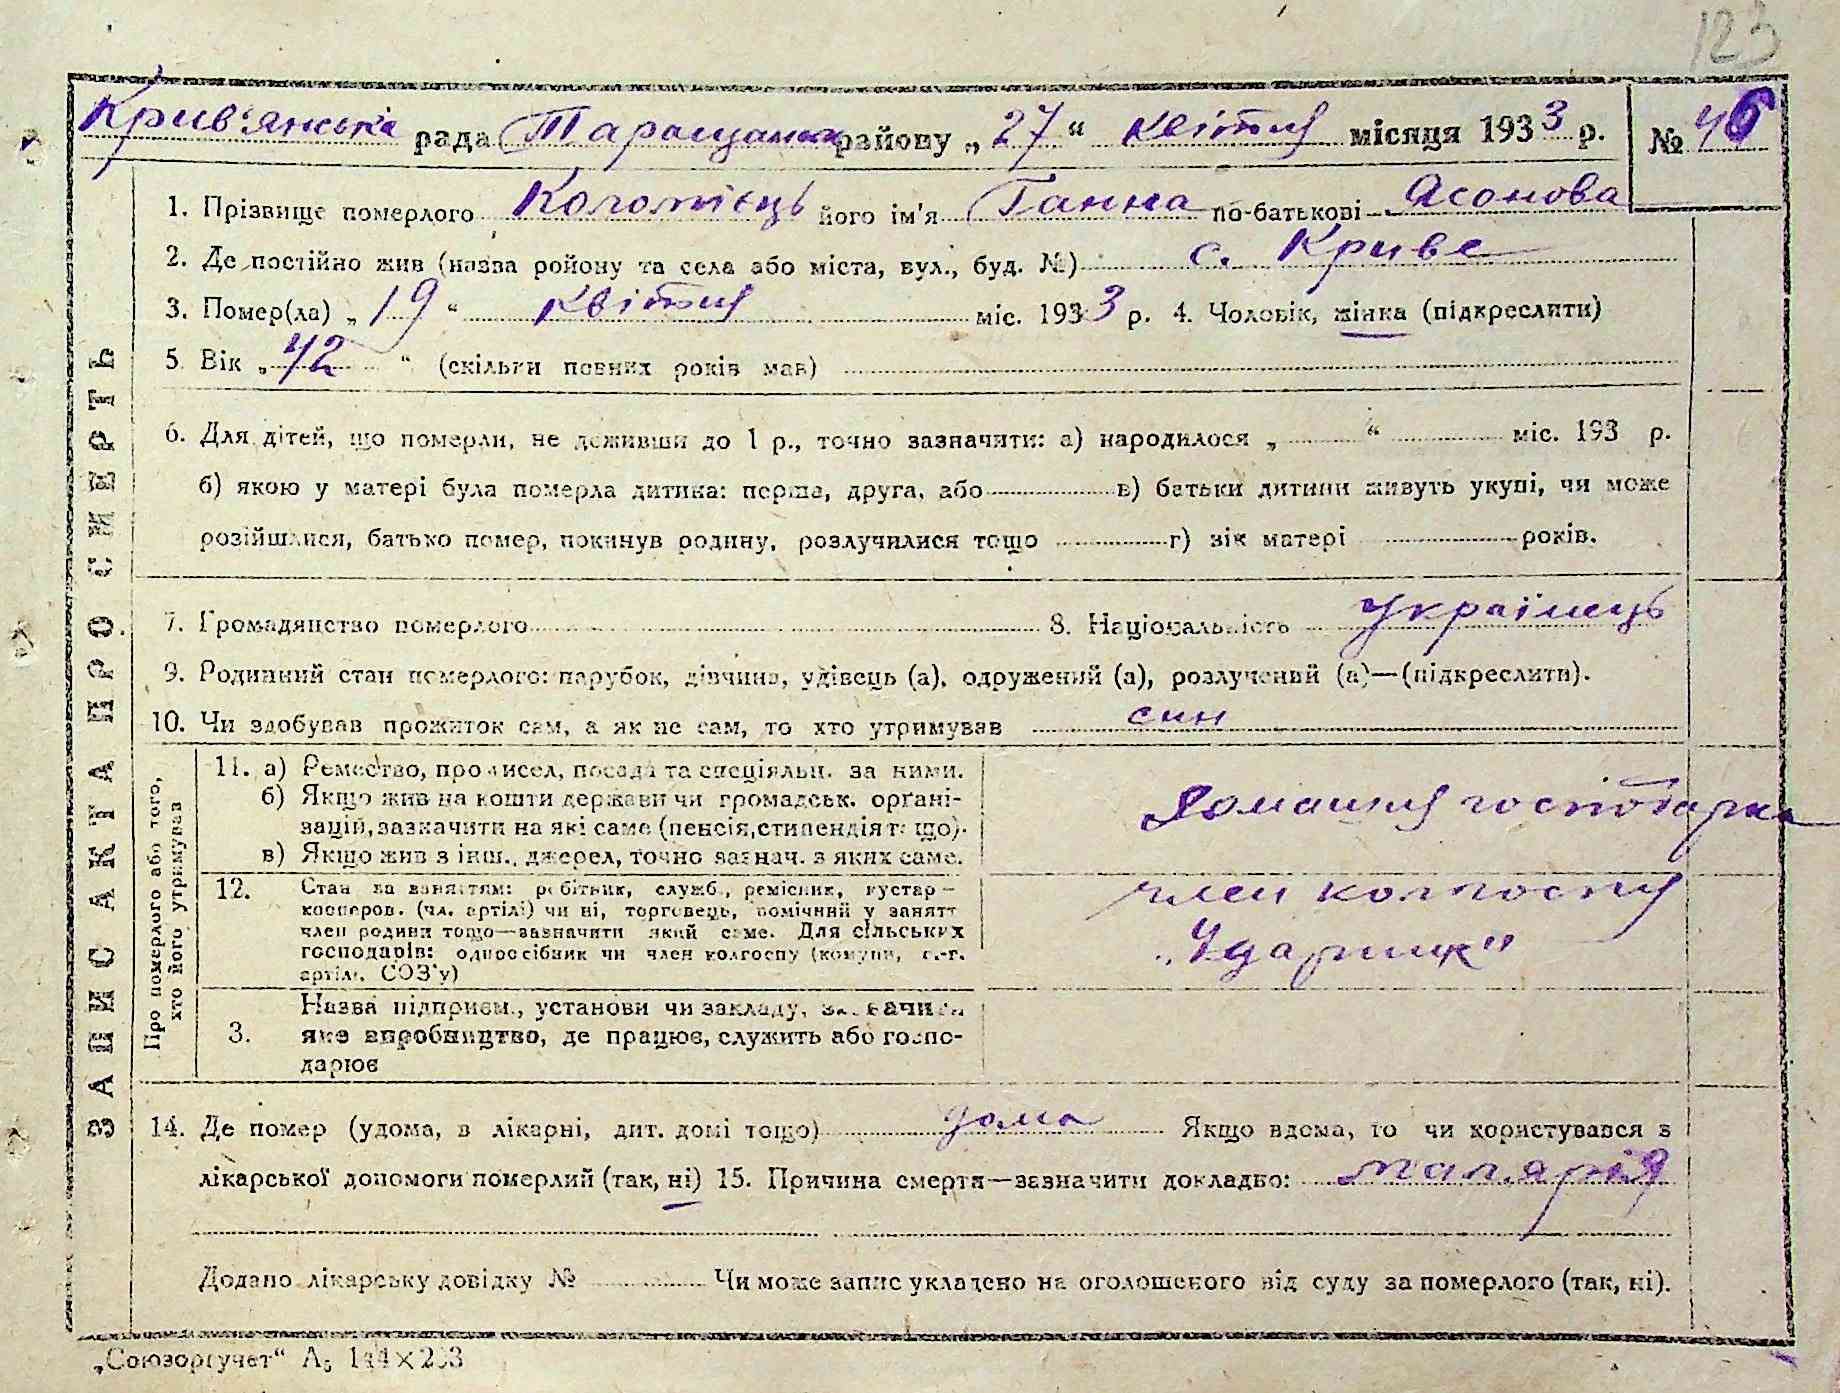 123
Крив'янська рада Таращанськ району „27“ квітня місяця 1933 р. № 46
1. Прізвище померлого Коломієць його ім'я Ганна по-батькові Ясонова
2. Де постійно жив (назва ройону та села або міста, вул., буд. №) с. Криве
3. Помер(ла) „19“ квітня міс. 1933 р. 4. Чоловік, жінка (підкреслити)
5. Вік „42“ (скільки повних років мав)
6. Для дітей, що померли, не доживши до 1 р., точно зазначити: а) народилося „ “ міс. 193 р.
б) якою у матері була померла дитина: перша, друга, або в) батьки дитини живуть укупі, чи може
розійшлися, батько помер, покинув родину, розлучилися тощо г) вік матері років.
7. Громадянство померлого 8. Національність українець
9. Родинний стан померлого: парубок, дівчина, удівець (а), одружений (а), розлучений (а)—(підкреслити).
10. Чи здобував прожиток сам, а як не сам, то хто утримував син
ЗАПИС АКТА ПРО СМЕРТЬ
Про померлого або того, хто його утримував
11. а) Ремество, промисел, посада та спеціяльн. за ними.
б) Якщо жив на кошти держави чи громадськ. органі-
зацій, зазначити на які саме (пенсія, стипендія тощо).
в) Якщо жив з інш. джерел, точно зазнач. з яких саме.
домашня господарка
12. Стан за заняттям: робітник, служб., ремісник, кустар—
коопєров. (чл. артілі) чи ні, торговець, помічний у занятт
член родини тощо—зазначити який саме. Для сільських
господарів: одноосібник чи член колгоспу (комуни, с.-г.
артілі, СОЗ'у)
член колгоспу
„Ударник"
3. Назва підприєм., установи чи закладу, зазначити
яке виробництво, де працює, служить або госпо-
дарює
14. Де помер (удома, в лікарні, дит. домі тощо) дома Якщо вдома, то чи користувався з
лікарської допомоги померлий (так, ні) 15. Причина смерти—зазначити докладно: малярія
Додано лікарську довідку № Чи може запис укладено на оголошеного від суду за померлого (так, ні).
„Союзоргучет“ А₅ 144×203